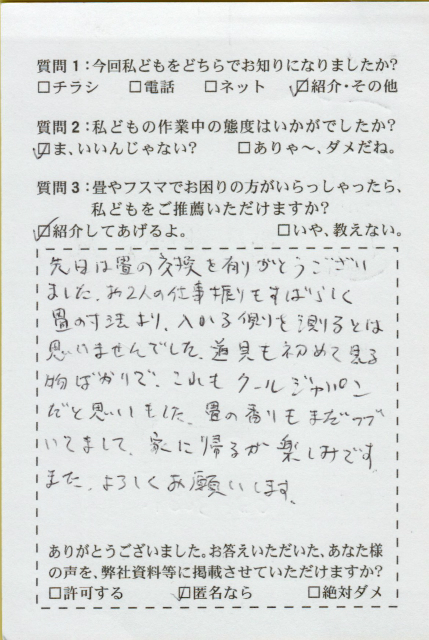 質問1：今回私どもをどちらでお知りになりましたか?
□チラシ □電話 □ネット ☑紹介・その他
質問2：私どもの作業中の態度はいかがでしたか?
☑ま、いいんじゃない? □ありゃ〜、ダメだね。
質問3：畳やフスマでお困りの方がいらっしゃったら、
私どもをご推薦いただけますか?
☑紹介してあげるよ。 □いや、教えない。
先日は畳の交換を有りがとうござい
ました。お2人の仕事振りもすばらしく
畳の寸法より、入れる側りを測るとは
思いませんでした。道具も初めて見る
物ばかりで、これもクールジャパン
だと思いました。畳の香りもまだつづ
いてまして、家に帰るが楽しみです。
また、よろしくお願いします。
ありがとうございました。お答えいただいた、あなた様
の声を、弊社資料等に掲載させていただけますか?
□許可する ☑匿名なら □絶対ダメ